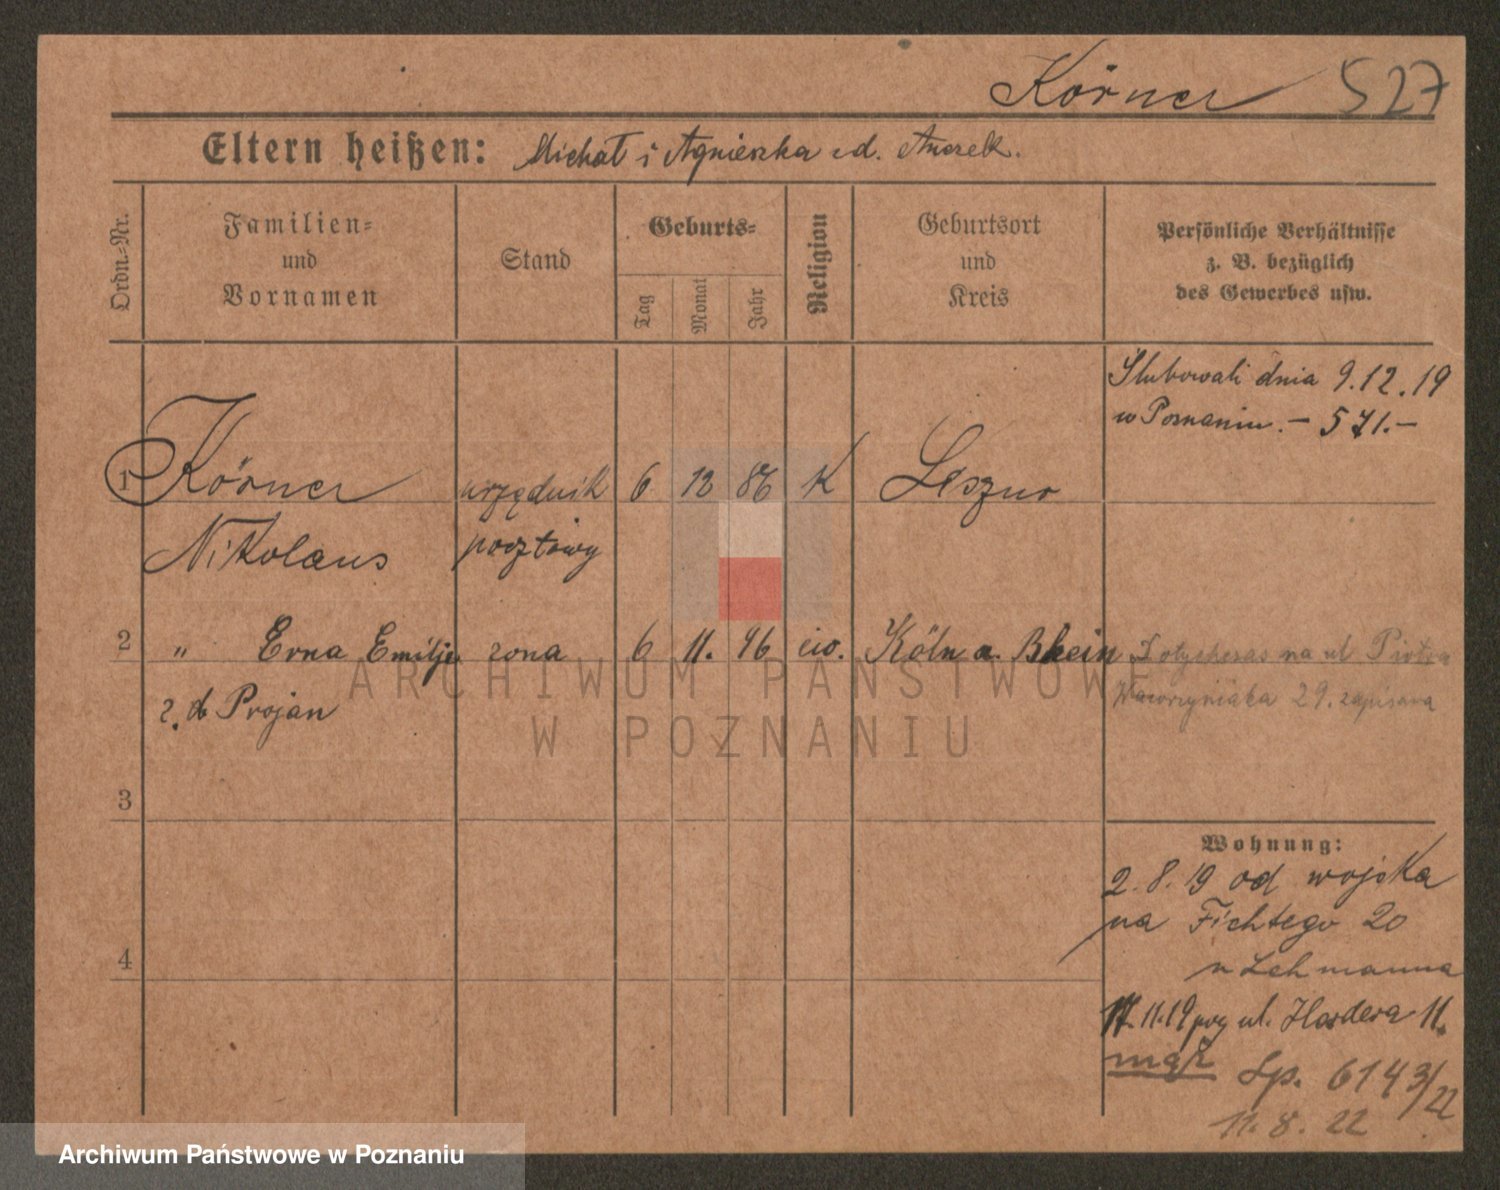 Körner 527
Eltern heißen: Michał i Agnieszka
Ordn.-Nr.
Familien-
und
Vornamen
Stand
Geburts-
Tag
Monat
Jahr
Religion
Geburtsort
und
Kreis
Persönliche Verhältnisse
z. B. bezüglich
des Gewerbes usw.
Ślubowali dnia 9.12.19
w Poznaniu. – 571.–
1 Körner urzędnik 6 12 86 K Leszno
Nikolaus pocztowy
2 " Erna Emilje żona 6 11. 96 Köln a. Rhein
z. d. Projan
Dotychczas na ul Piotra
Wawrzyniaka 29. zapisana
3
4
Wohnung:
2.8.19 od wojska
na Fichtego 20
u Lehmanna
11.19 ul. Herdera 11.
mąż Sp. 6143/22
11.8.22
ARCHIWUM PAŃSTWOWE
W POZNANIU
Archiwum Państwowe w Poznaniu